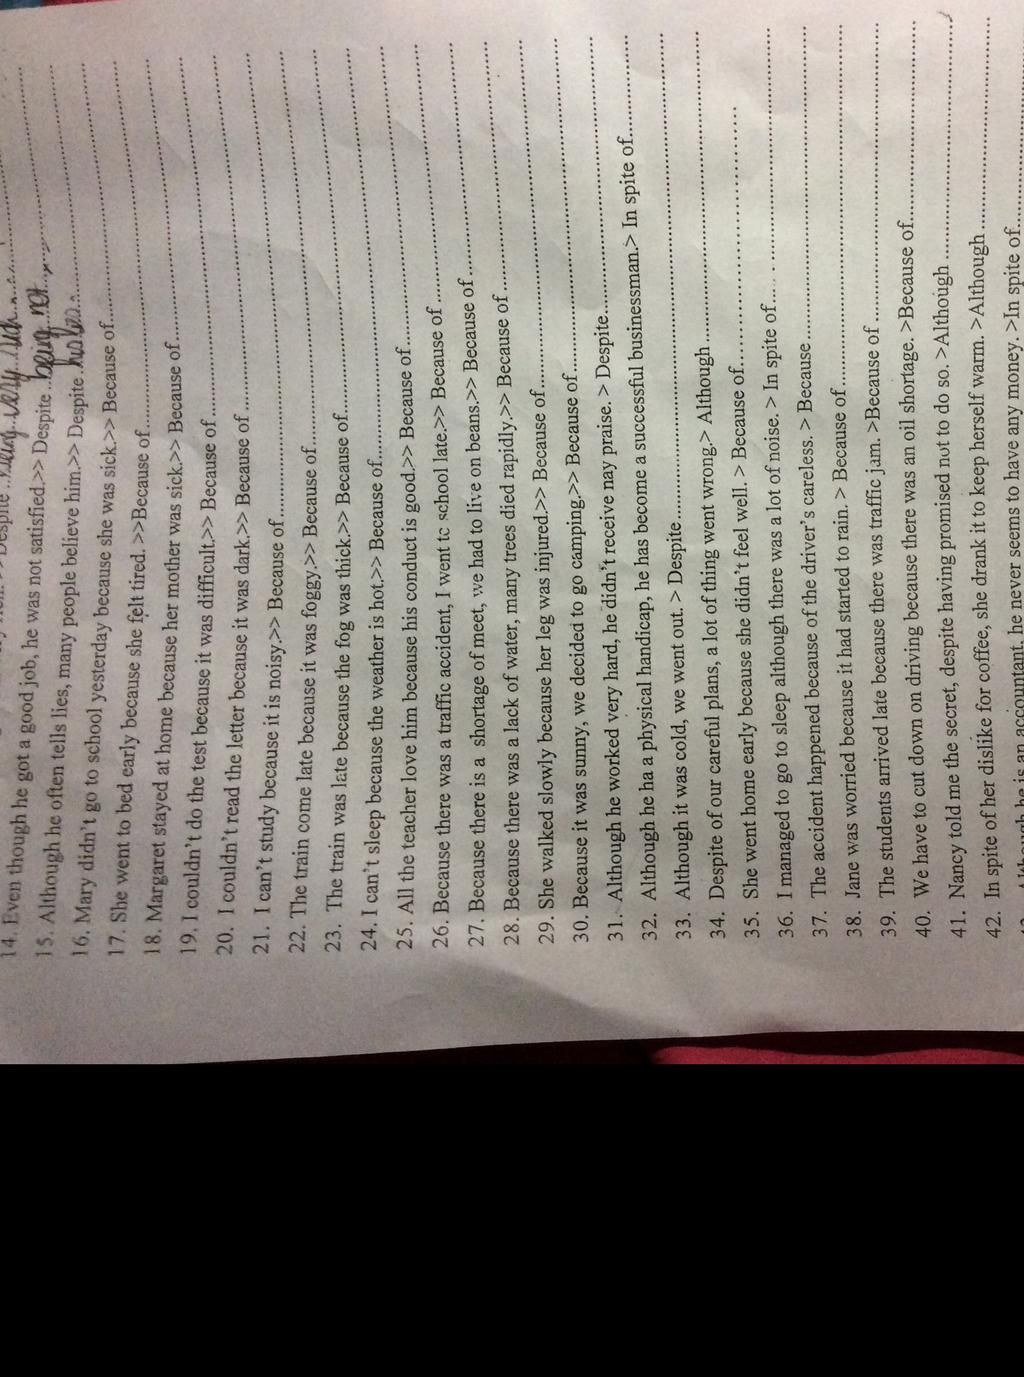 Despite
14. Even though he got a good job, he was not satisfied.>> Despite .. being not
15. Although he often tells lies, many people believe him.>> Despite ..his lies
16. Mary didn't go to school yesterday because she was sick.>> Because of..........
17. She went to bed early because she felt tired. >>Because of..........
18. Margaret stayed at home because her mother was sick.>> Because of..........
19. I couldn't do the test because it was difficult.>> Because of..........
20. I couldn't read the letter because it was dark.>> Because of..........
21. I can't study because it is noisy.>> Because of..........
22. The train come late because it was foggy.>> Because of..........
23. The train was late because the fog was thick.>> Because of..........
24. I can't sleep because the weather is hot.>> Because of..........
25. All the teacher love him because his conduct is good.>> Because of..........
26. Because there was a traffic accident, I went to school late.>> Because of..........
27. Because there is a shortage of meet, we had to live on beans.>> Because of..........
28. Because there was a lack of water, many trees died rapidly.>> Because of..........
29. She walked slowly because her leg was injured.>> Because of..........
30. Because it was sunny, we decided to go camping.>> Because of..........
31. Although he worked very hard, he didn't receive nay praise. > Despite..........
32. Although he ha a physical handicap, he has become a successful businessman.> In spite of..........
33. Although it was cold, we went out. > Despite..........
34. Despite of our careful plans, a lot of thing went wrong.> Although..........
35. She went home early because she didn't feel well. > Because of..........
36. I managed to go to sleep although there was a lot of noise. > In spite of..........
37. The accident happened because of the driver's careless. > Because..........
38. Jane was worried because it had started to rain. > Because of..........
39. The students arrived late because there was traffic jam. >Because of ..........
40. We have to cut down on driving because there was an oil shortage. >Because of..........
41. Nancy told me the secret, despite having promised not to do so. >Although ..........
42. In spite of her dislike for coffee, she drank it to keep herself warm. >Although ..........
43. Although he is an accountant, he never seems to have any money. >In spite of..........